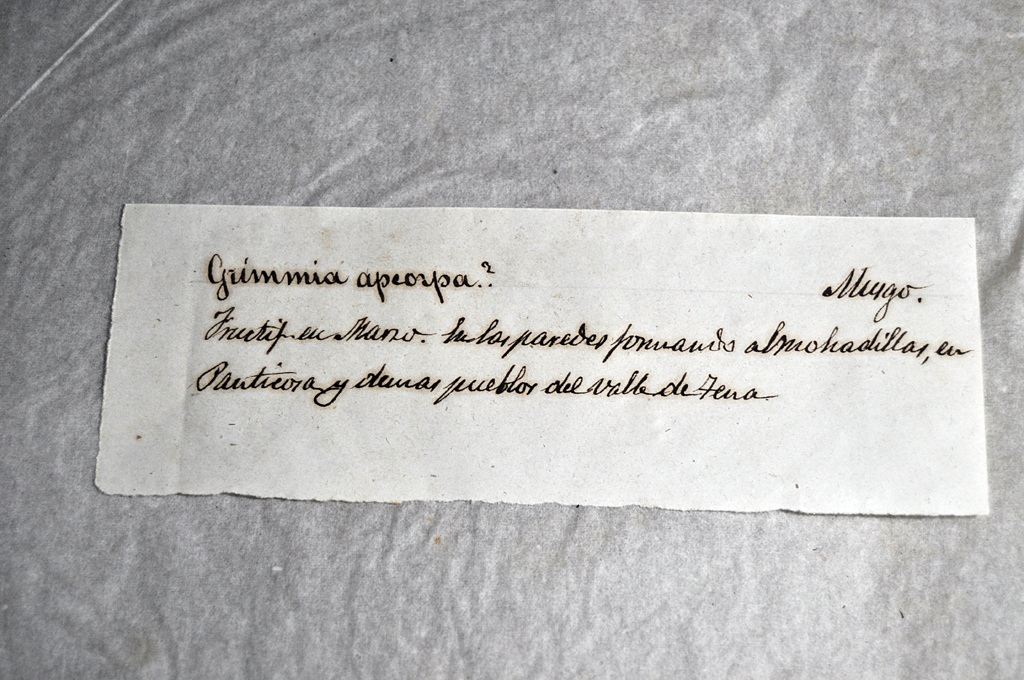 Grimmia apcorpa.? Musgo.
Fructif. en Marzo. En las paredes formando almohadillas, en
Panticosa y demas pueblos del valle de Tena